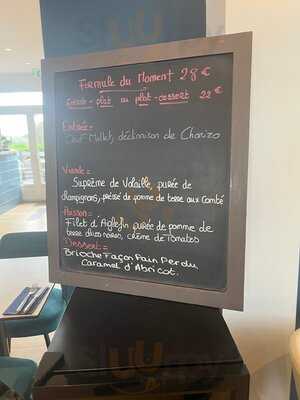 Formule du Moment 28 €
Entrée - plat ou plat - dessert 22 €
Entrée =
Oeuf Mollet, déclinaison de Chorizo
Viande =
Suprême de Volaille, purée de
champignons, pressé de pomme de terre aux Comté
Poisson =
Filet d'Aiglefin purée de pomme de
terre, crème de Tomates
Dessert =
Brioche Façon Pain Perdu
Caramel d'Abricot.